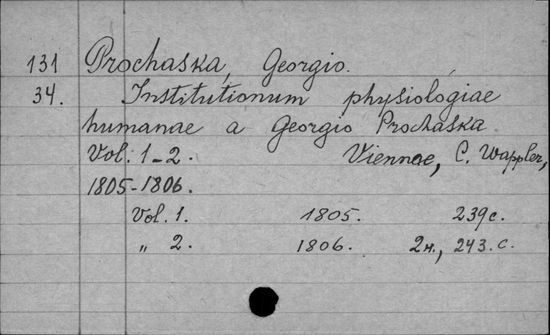 131 Prochaska, Georgio.
34. Institutionum physiologiae
humanae a Georgio Prochaska
Vol. 1-2. Viennae, C. Wappler,
1805-1806.
Vol. 1. 1805. 239 с.
„ 2. 1806. 2 н., 243. с.